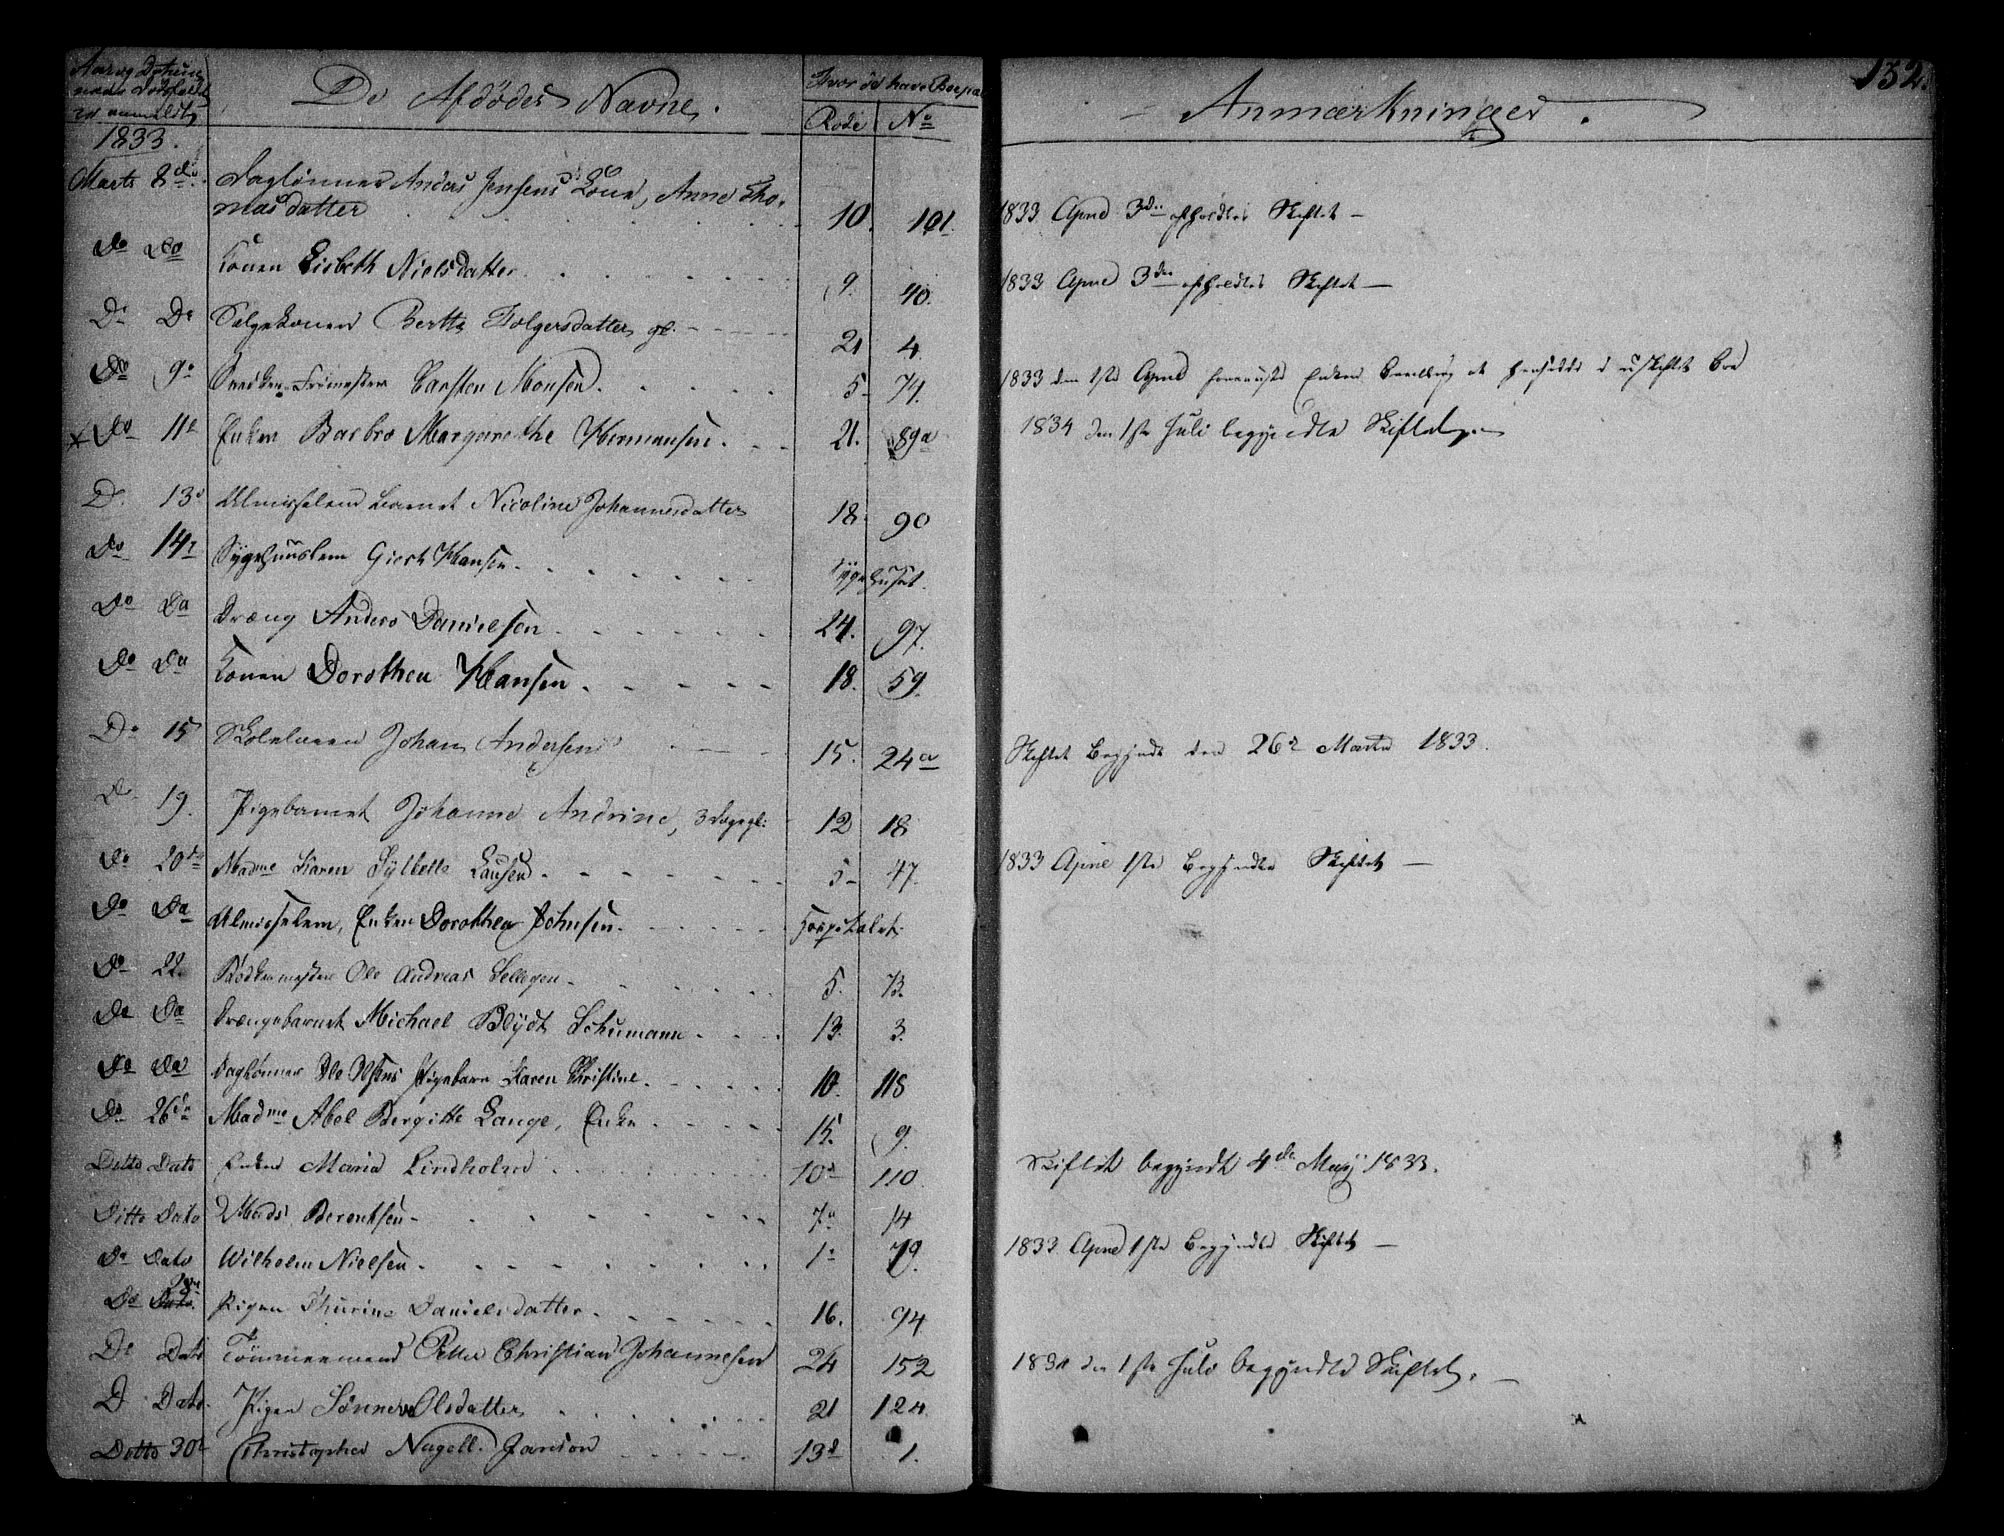 132.
Aar og Datum
naar Dødsfaldet
er anmeldt
De Afdødes Navne.
Hvor de have Boepæl
Rode No
Anmærkninger.
1833.
Marts 8de Daglønner Anders Jensens Kone, Anne Tho-
masdatter 10. 101. 1833 April 3die afholdtes Skiftet —
Do Do Konen Lisbeth Nielsdatter 9. 40. 1833 April 3die afholdtes Skiftet —
Do Do Selgekonen Berthe Holgersdatter 21 4
Do 9e Carsten Monsen. 5 74. 1833 den 1ste April Enken at hensidde i uskiftet Boe
Do 11e Enken Barbro Margarethe Hermansen. 21. 89a 1834 den 1ste Juli begyndte Skiftet. —
D. 13e Almisselem Barnet Nicoline Johannesdatter 18. 90
Do 14e Sygehuuslem Giert Hansen. Sygehuset.
Do Do Dræng Anders Danielsen 24. 97.
Do Do Konen Dorothea Hansen. 18. 59.
Do 15 Johan Andersen 15. 24a Skiftet Begyndt den 26de Marts 1833.
Do 19. Pigebarnet Johanne Andrine, 3 Dage gl. 12 18
Do 20de Madme Karen Sylbelle Lausen. 5 47. 1833 April 1ste Begyndte Skiftet —
Do Do Almisselem, Enken Dorothea Johnsen. Hospitalet.
Do 22. Bødkermester Ole Andreas Sellegen. 5. 73.
Do Do Drængebarnet Michael Blydt Schumann 13. 3.
Do Do Daglønner Ole Olsens Pigebarn Karen Christine. 10. 118
Do 26de Madme Abel Bergitte Lange, Enke 15. 9.
Ditto Dato Enken Maria Lindholm 10de 110. Skiftet begyndt 4de May 1833.
Ditto Dato Mads Berentsen 7e 14
Do Dato Wilhelm Nielsen. 1e 79. 1833 April 1ste Begyndte Skiftet —
Do Dato. Pigen Thurine Danielsdatter. 16. 94
Do Dato Tømmermand Petter Christian Johannesen 24 152 1834 den 1ste Juli begyndte Skiftet. —
D Dato. Pigen Sønneve Olsdatter 21 124.
Ditto 30te Christopher Nagell Janson 13d 1.